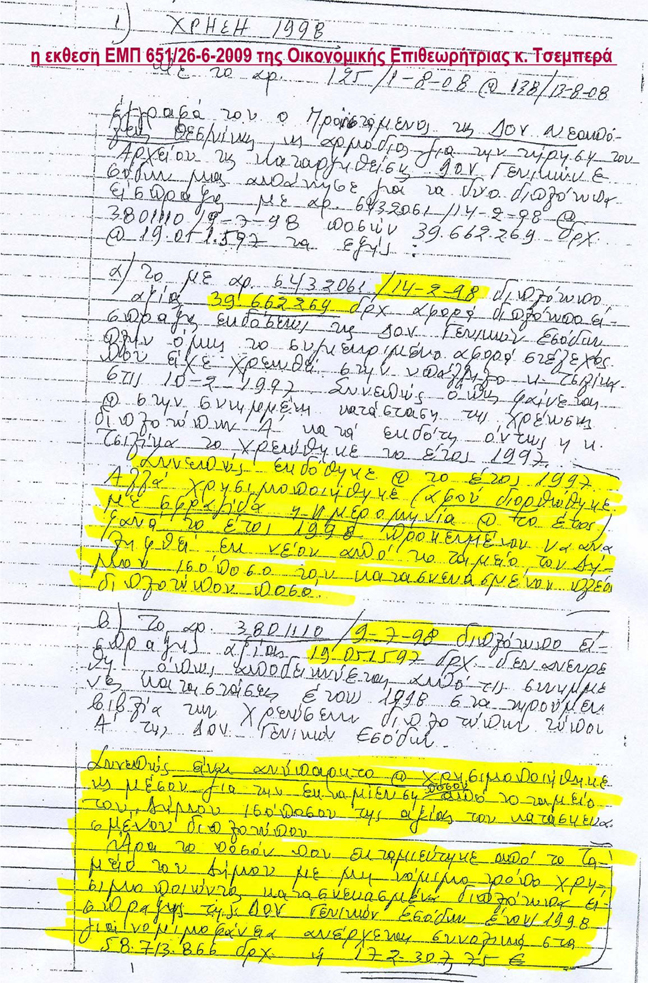 1) ΧΡΗΣΗ 1998
η εκθεση ΕΜΠ 651/26-6-2009 της Οικονομικής Επιθεωρήτριας κ. Τσεμπερά
Με το αρ. 125/1-8-08 @ 128/13-8-08
έγγραφό του ο Προϊστάμενος της ΔΟΥ Νεαπό-
λεως Θεσ/νίκης ως αρμόδιος για την τήρηση του
Αρχείου της καταργηθείσης ΔΟΥ Γενικών Ε
σόδων μας απάντησε για τα δύο διπλότυπα
είσπραξης με αρ. 6432061/14-2-98 @
3801110/9-7-98 ποσών 39.662.269 δρχ
@ 19.051.597 τα εξής:
α) το με αρ. 6432061/14-2-98 διπλότυπο
αξίας 39.662269 δρχ αφορά διπλότυπο εί-
σπραξης εκδόσεως της ΔΟΥ Γενικών Εσόδων
πλην όμως το συγκεκριμένο αφορά στέλεχος
που είχε χρεωθεί στην υπάλληλο κ. Τσιλίκα
στις 10-2-1997 Συνεπώς όπως φαίνεται
@ στην συνημμένη κατάσταση της χρέωσης
διπλοτύπων Α' κατά εκδότη όντως η κ.
Τσιλίκα το χρεώθηκε το έτος 1997.
Συνεπώς εκδόθηκε @ το έτος 1997
Αλλά χρησιμοποιήθηκε (αφού διορθώθηκε
με σφραγίδα η ημερομηνία @ το έτος)
ξανά το έτος 1998 προκειμένου να ανα
ληφθεί εκ νέου από το ταμείο του Δή-
μου ισόποσο του κατασκευασμένου πλέον
διπλοτύπου ποσό.
β) Το αρ. 3801110/9-7-98 διπλότυπο εί-
σπραξης αξίας 19.051597 δρχ. δεν ανευρέ
θη όπως αποδεικνύεται από τις συνημμέ
νες καταστάσεις έτους 1998 στα τηρούμενα
βιβλία της χρεώσεων διπλοτύπων τύπου
Α' της ΔΟΥ Γενικών Εσόδων.
Συνεπώς είναι ανύπαρκτο @ χρησιμοποιήθηκε
ως μέσον για την εκταμίευση ποσού από το ταμείο
του Δήμου ισόποσου της αξίας του κατασκευα-
σμένου διπλοτύπου
Άρα το ποσόν που εκταμιεύτηκε από το Τα-
μείο του Δήμου με μη νόμιμο τρόπο χρη-
σιμοποιώντας κατασκευασμένα διπλότυπα εί-
σπραξης της ΔΟΥ Γενικών Εσόδων έτους 1998
για νομιμοφάνεια ανέρχεται συνολικά στα
58.713.866 δρχ. ή 172.307,75 €